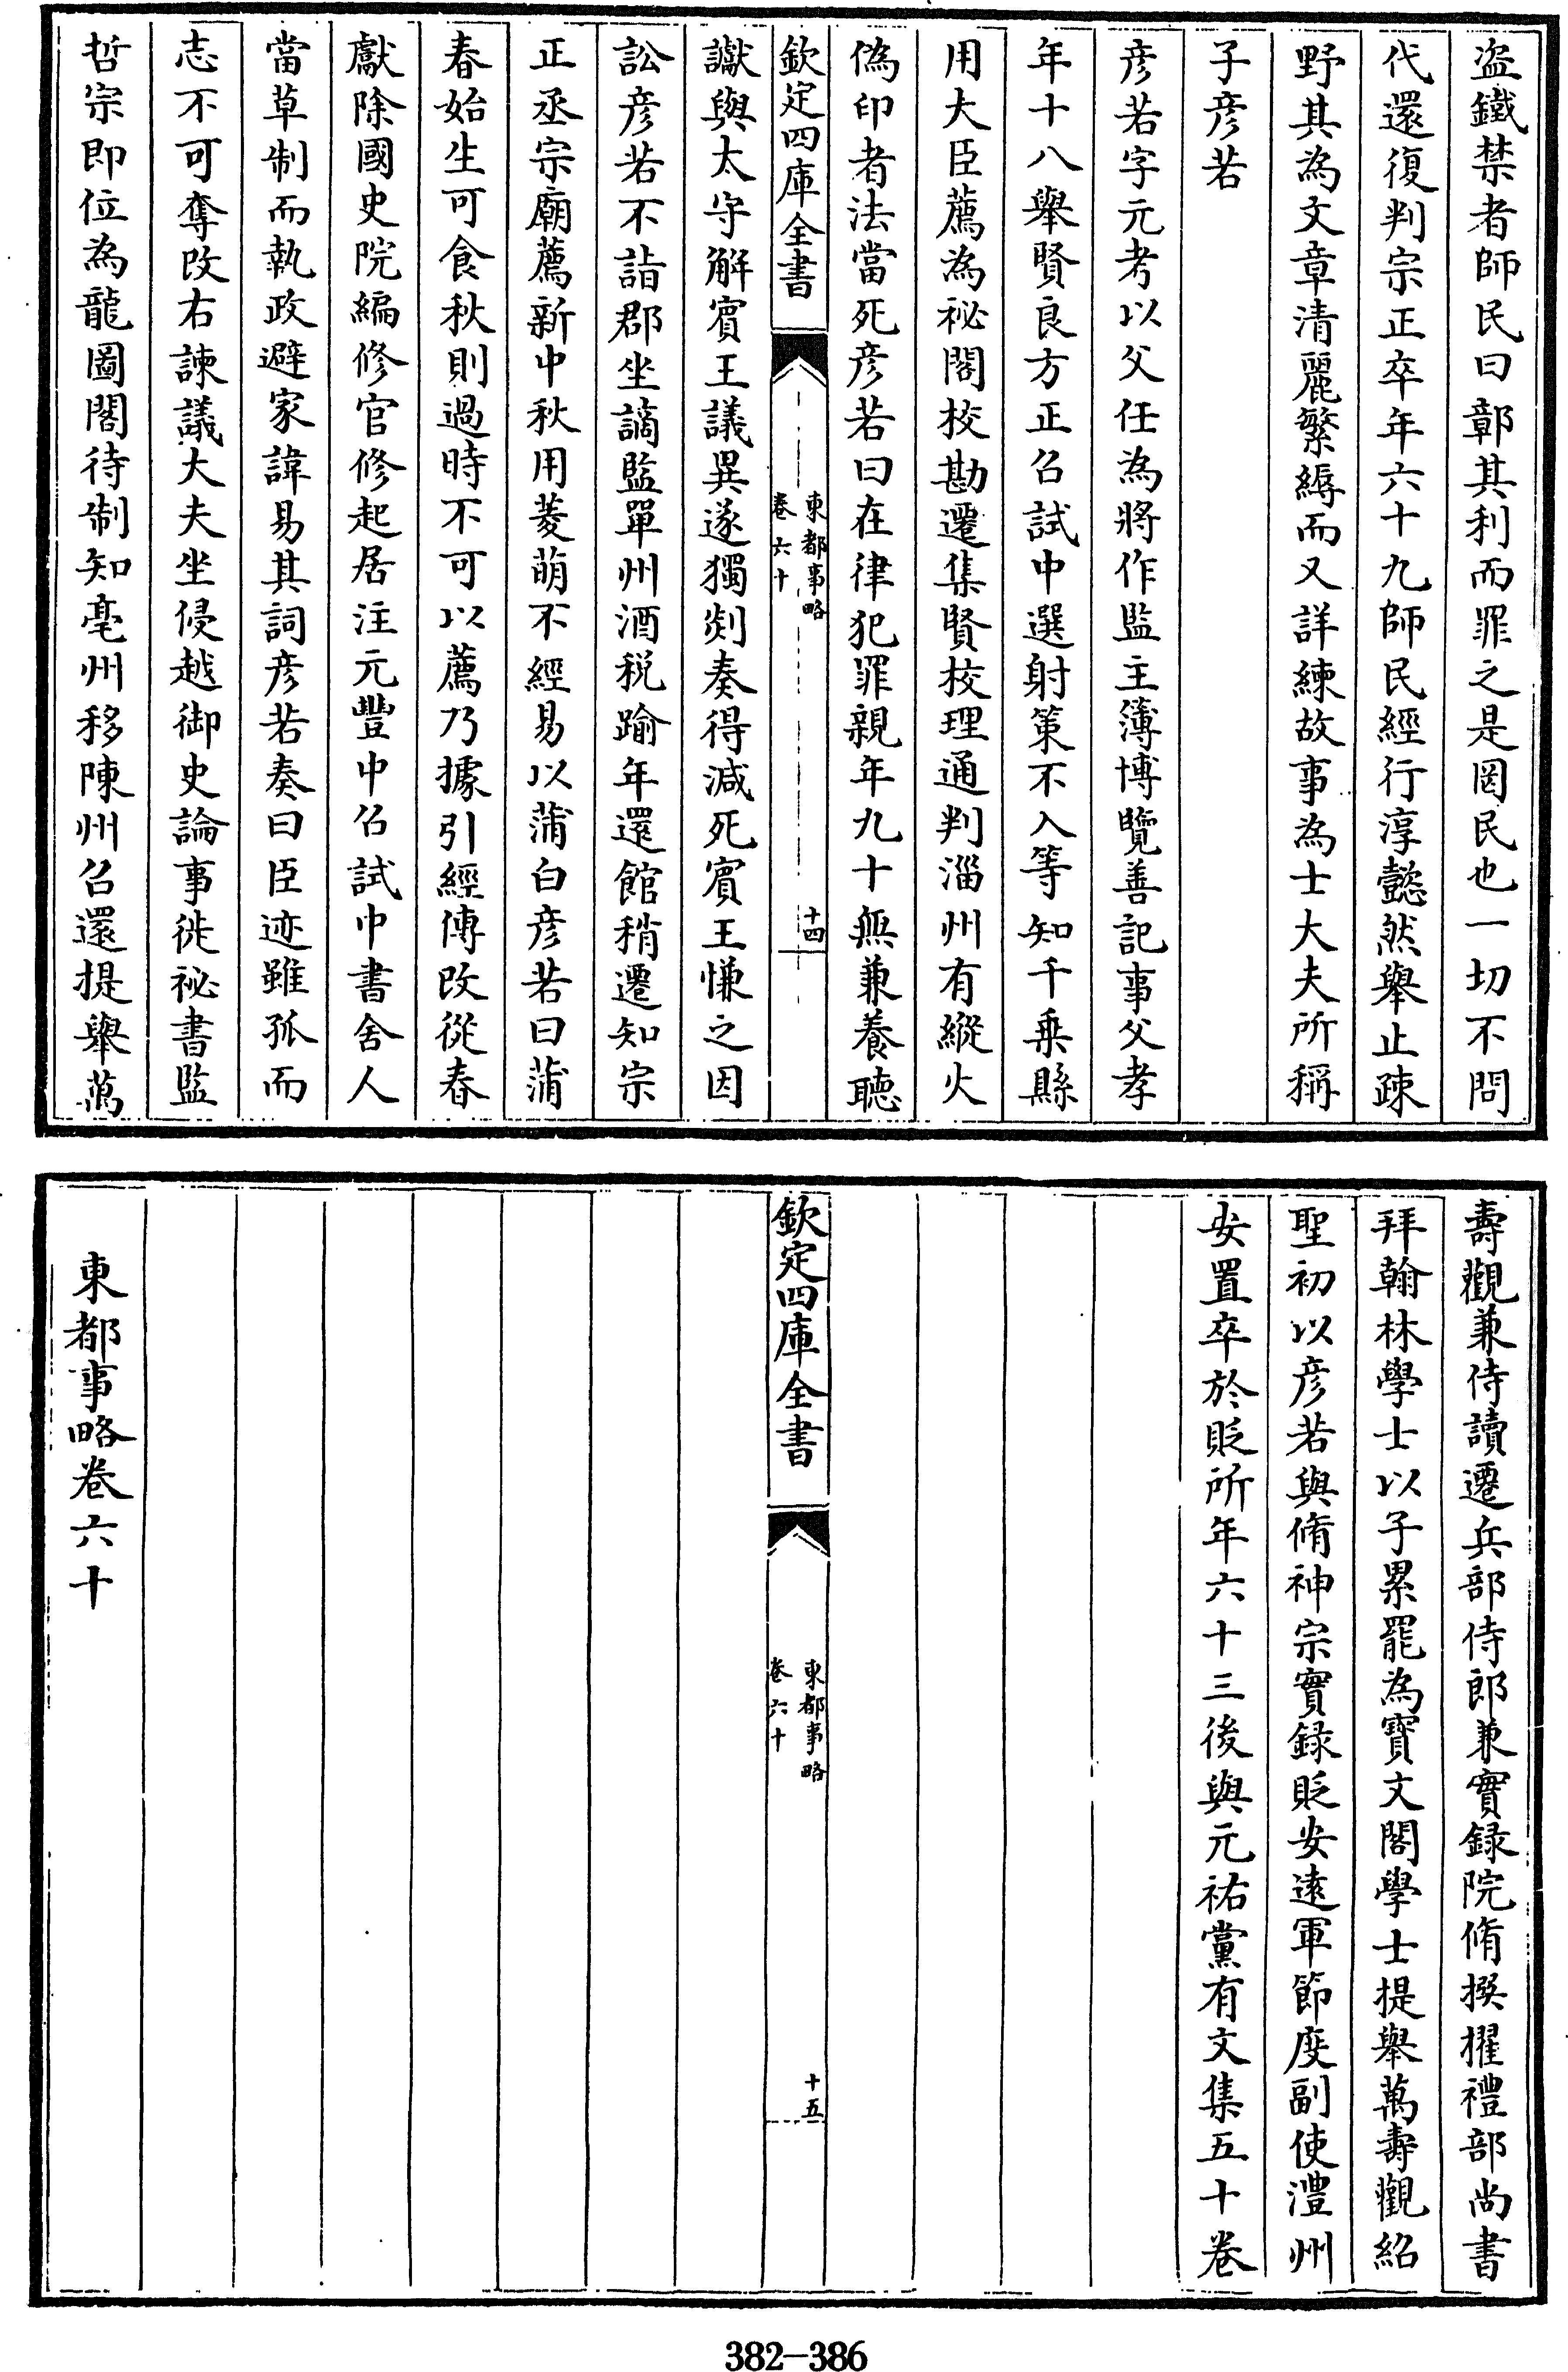 盗鐵禁者師民曰鄣其利而罪之是罔民也一切不問
代還復判宗正卒年六十九師民經行淳懿然舉止疎
野其為文章清麗繁縟而又詳練故事為士大夫所稱
子彦若
彦若字元考以父任為將作監主簿博覽善記事父孝
年十八舉賢良方正召試中選射策不入等知千乗縣
用大臣薦為祕閣校勘遷集賢校理通判淄州有縱火
偽印者法當死彦若曰在律犯罪親年九十無兼養聽
欽定四庫全書
東都事略
卷六十
十四
讞與太守解賓王議異遂獨剡奏得減死賓王慊之因
訟彦若不詣郡坐謫監單州酒税踰年還館稍遷知宗
正丞宗廟薦新中秋用菱萌不經易以蒲白彦若曰蒲
春始生可食秋則過時不可以薦乃據引經傳改從春
獻除國史院編修官修起居注元豐中召試中書舍人
當草制而執政避家諱易其詞彦若奏曰臣迹雖孤而
志不可奪改右諫議大夫坐侵越御史論事徙祕書監
哲宗即位為龍圖閣待制知亳州移陳州召還提舉萬
壽觀兼侍讀遷兵部侍郎兼實録院脩撰擢禮部尚書
拜翰林學士以子累罷為寳文閣學士提舉萬壽觀紹
聖初以彦若與脩神宗實録貶安逺軍節度副使澧州
安置卒於貶所年六十三後與元祐黨有文集五十卷
欽定四庫全書
東都事略
卷六十
十五
東都事略卷六十
382-386